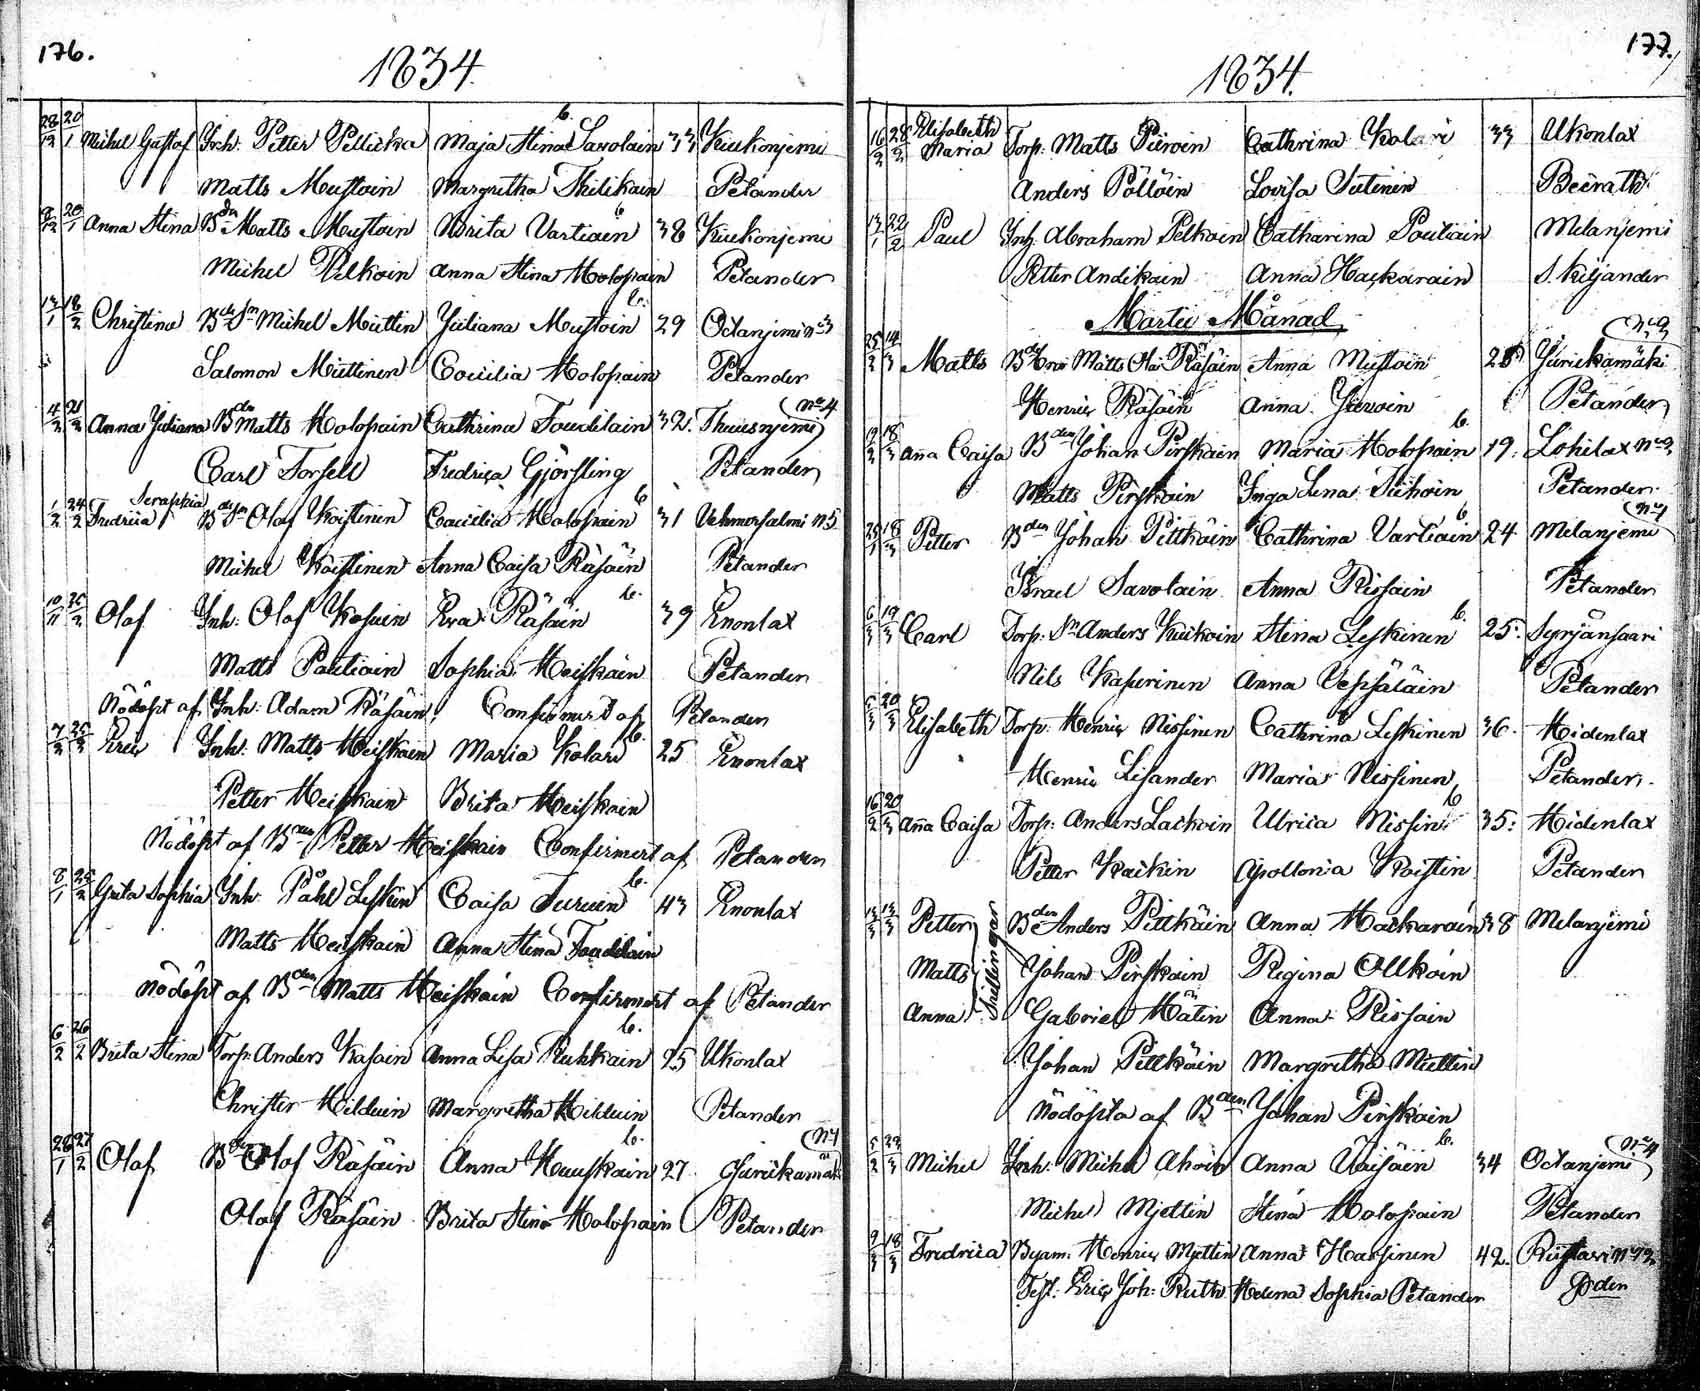 176.
1834.
28/12 20/1 Michel Gustaf Inh: Petter Pellicka Maja Stina Savolain 33 Kiukonjemi
Matts Mustoin Margretha Thilikain Petander
9/12 20/1 Anna Stina Bdn Matts Mustoin Brita Vartiain 38 Kiukonjemi
Michel Pelkoin Anna Stina Holopain Petander
13/1 18/2 Christina Bde Sn Michel Miettin Juliana Mustoin 29 Octanjemi No 3
Salomon Miettinen Cecilia Holopain Petander
4/2 21/2 Anna Juliana Bdn Matts Holopain Cathrina Toudilain 32. Thuusnjemi No 4
Carl Forsell Fredrica Gjörsling Petander
1/2 24/2 Fredrica Seraphia Bde Sn Olof Koistinen Caecilia Holopain 31 Vehmersalmi N 5
Michel Koistinen Anna Caisa Räsäin Petander
10/11 25/2 Olof Inh: Olof Kosuin Eva Räsäin 39 Enonlax
Matts Pautiain Sophia Heiskain Petander
Nödöpt af Inh: Adam Räsäin, Confirmert af Petander
7/2 25/2 Eric Inh: Matts Heiskain Maria Kolari 25 Enonlax
Petter Heiskain Brita Heiskain
Nödöpt af Bden Petter Heiskain Confirmert af Petander
8/1 25/2 Greta Sophia Inh: Påhl Leskin Caisa Turuin 43 Enonlax
Matts Heiskain Anna Stina Toudilain
Nödöpt af Bden Matts Heiskain Confirmert af Petander
6/2 26/2 Brita Stina Torp: Anders Kasain Anna Lisa Ruhkain 25 Ukonlax
Christer Hilduin Margretha Hilduin Petander
28/1 27/2 Olof Bden Olof Räsäin Anna Huuskain 27. Jurickamäki N 1
Olof Räsäin Brita Stina Holopain Petander
177.
1834.
16/2 28/2 Elisabeth Maria Torp: Matts Piiroin Cathrina Kolari 33 Ukonlax
Anders Pöllöin Lovisa Sutinen Becrath
13/1 22/2 Paul Inh: Abraham Pelkoin Catharina Poutiain Melanjemi
Petter Andikain Anna Hackarain S. Kiljander
Martii Månad
25/2 14/3 Matts Matts Räsäin Anna Mustoin 28 Jurickamäki No 2
Henric Räsäin Anna Jivoin Petander
18/3 Anna Caisa Bden Johan Pirskain Maria Holopain 19. Lohilax No 2
Matts Pirskain Inga Lena Tiihoin Petander
25/2 18/3 Petter Bden Johan Pittkäin Cathrina Vartiain 24 Melanjemi No 1
Israel Savolain Anna Rissain Petander
6/3 19/3 Carl Torp: Sn Anders Kiikoin Stina Leskinen 25. Syrjänsaari
Nils Kasurinen Anna Vepsäläin Petander
6/3 20/3 Elisabeth Torp: Henric Nissinen Cathrina Leskinen 36. Hidenlax
Henric Lisander Maria Nissinen Petander
16/2 20/3 Anna Caisa Torp: Anders Laihoin Ulrica Nissin 35: Hidenlax
Petter Kaikin Apollonia Koistin Petander
13/3 13/3 Petter Matts Anna Trillingar Bden Anders Pittkäin Anna Hackarain 38 Melanjemi
Johan Pirskain Regina Ollkoin
Gabriel Hätin Anna Rissain
Johan Pittkäin Margretha Miettin
Nödöpta af Bden Johan Pirskain
5/2 22/3 Michel Inh: Michel Ahoin Anna Väisäin 34 Octanjemi No 4
Michel Mjettin Stina Holopain Petander
9/3 18/3 Fredrica Byam: Henric Mjettin Anna Hassinen 42. Riistavesi N 12
Test: Eric Joh: Ruth Helena Sophia Petander Jöden